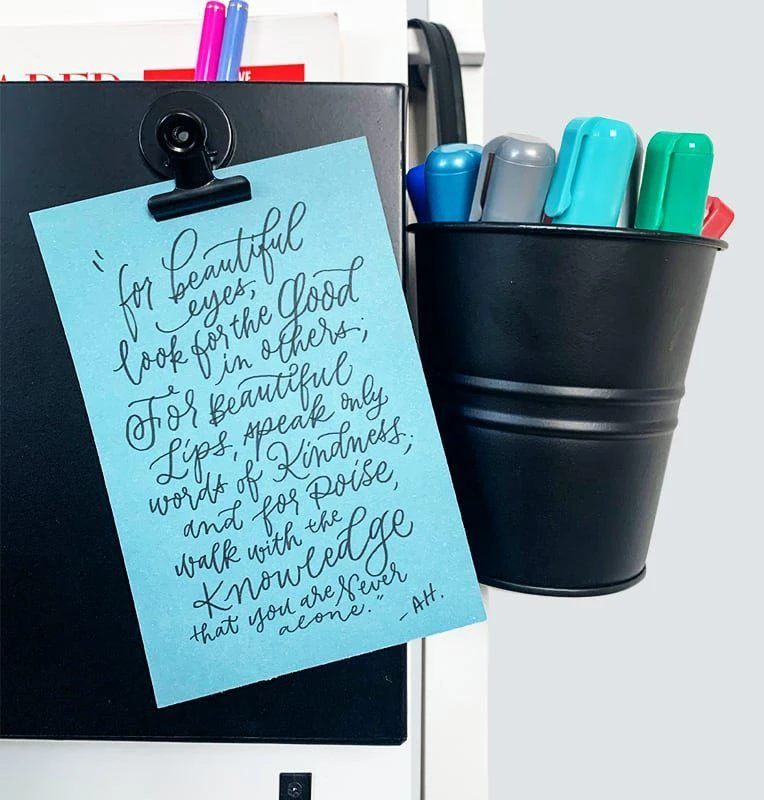 VE
"for beautiful
eyes,
look for the Good
in others;
For Beautiful
Lips, speak only
words of Kindness;
and for Poise,
walk with the
Knowledge
that you are Never
alone."
-AH.